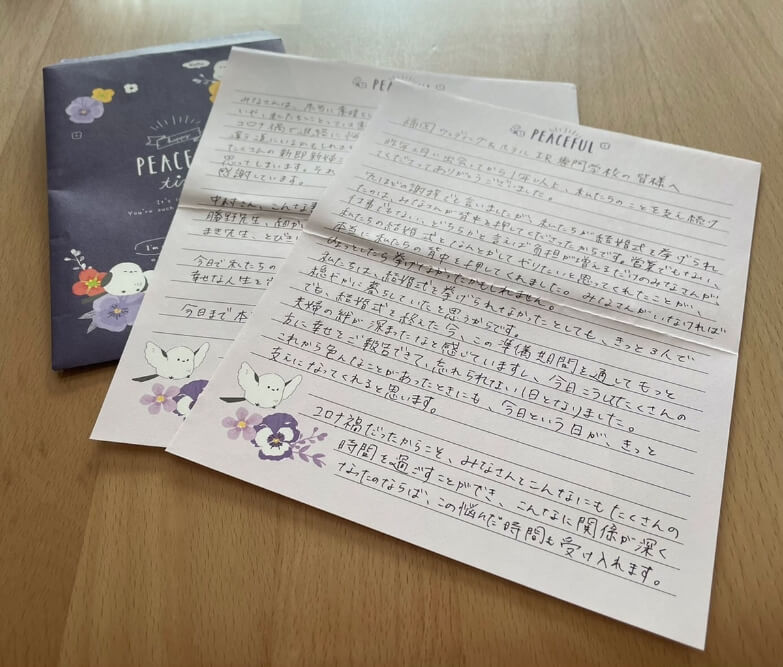 Happy
PEACEFUL
time
It's
You're such
I'm
PEACEFUL
みなさんは、本当に素敵な
いや、私たちにとっては
コロナ禍で
たくさんの新郎新婦
思ってしまいます。それ
感謝しています。
中村さん、こんな
勝野先生、
まき先生、とびき
今日で私たちの
幸せな人生を
今日まで本
PEACEFUL
福岡ウェディング&ホテル・IR専門学校の皆様へ
昨年 月に出会ってから1年以上、私たちのことを支え続け
てくださってありがとうございました。
先ほどの謝辞でも言いましたが、私たちが結婚式を挙げられ
たのは、みなさんが背中を押してくださったからです。営業でもない、
仕事でもない、どちらかと言えば負担が増えるだけのみなさんが、
私たちの結婚式をなんとかしてやりたいと思ってくれたことが、
本当に私たちの背中を押してくれました。みなさんがいなければ
きっとしたら挙げてなかったかもしれません。
私たちは、結婚式を挙げられなかったとしても、きっと3人で
穏やかに暮らしていたと思うからです。
でも、結婚式を終えた今、この準備期間を通してもっと
夫婦の絆が深まったなと感じていますし、今日こうしてたくさんの
友に幸せをご報告できて、忘れられない1日となりました。
これから色んなことがあったときにも、今日という日が、きっと
支えになってくれると思います。
コロナ禍だったからこそ、みなさんとこんなにもたくさんの
時間を過ごすことができ、こんなに関係が深く
なったのならば、この悩んだ時間も受け入れます。